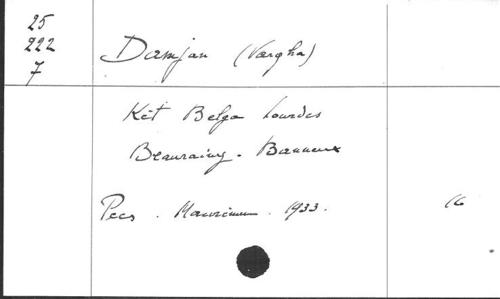 25
222
7
Damjan (Vargha)
Két Belga Lourdes
Beauraing. Banneux
Pecs. Maurinum. 1933.
16